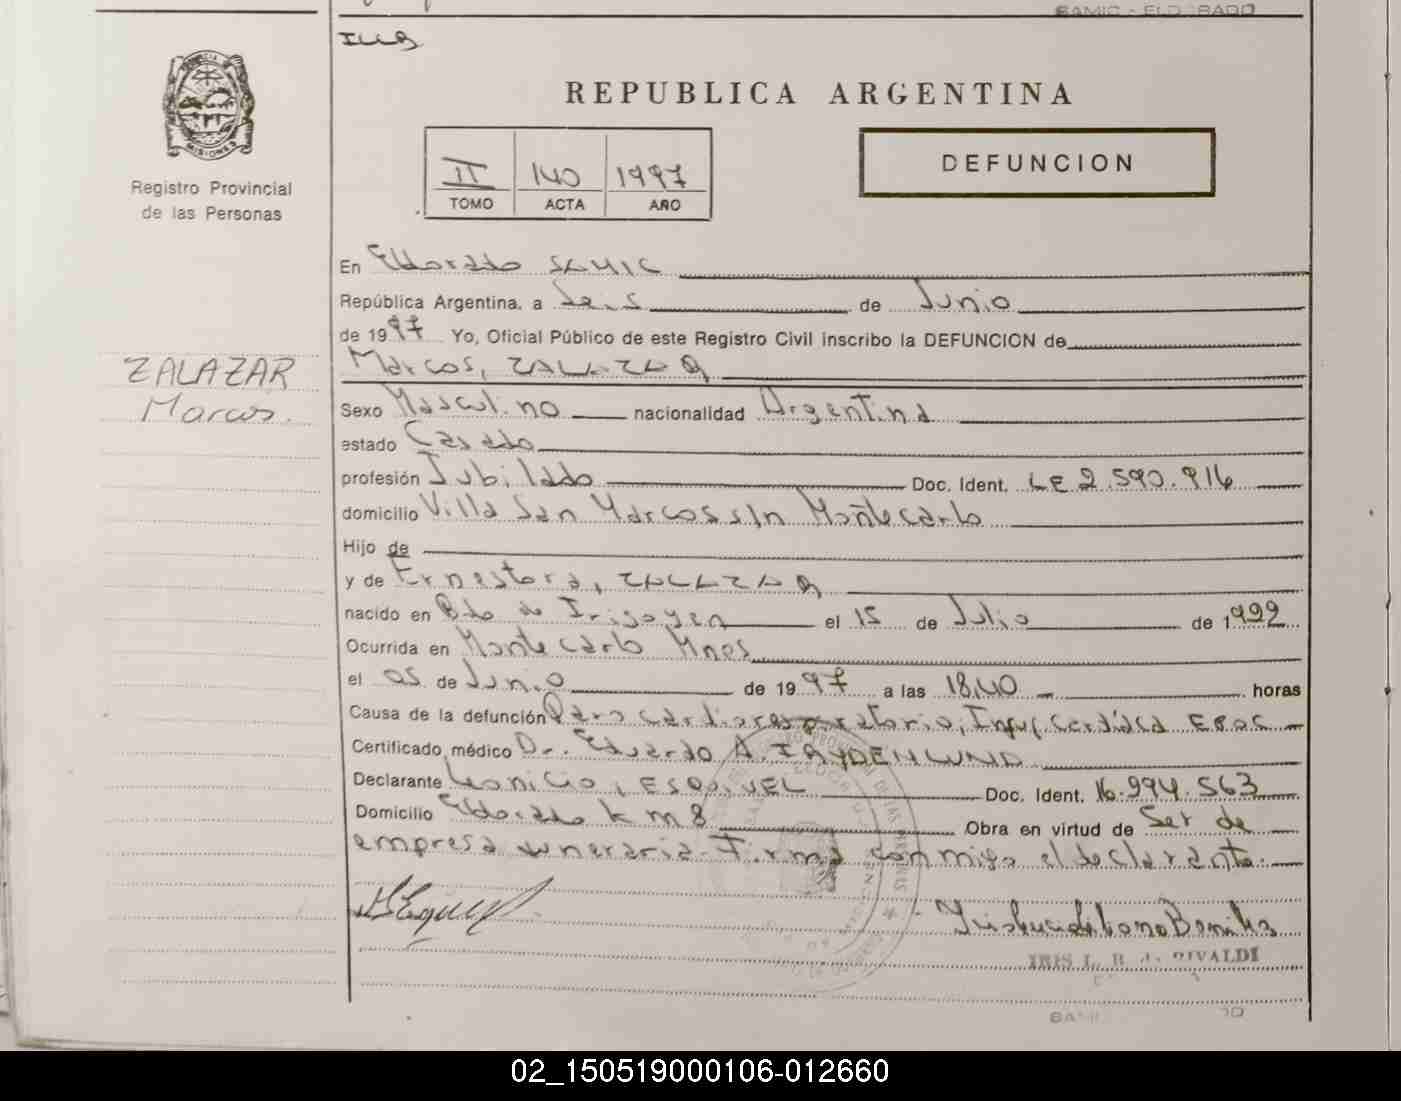 SAMIC - ELDORADO
REPUBLICA ARGENTINA
PROVINCIA DE
MISIONES
Registro Provincial
de las Personas
II 140 1997
TOMO ACTA AÑO
DEFUNCION
En Eldorado SAMIC
República Argentina, a Seis de Junio
de 1997 Yo, Oficial Público de este Registro Civil inscribo la DEFUNCION de
Marcos, ZALAZAR
ZALAZAR
Marcos.
Sexo Masculino nacionalidad Argentina
estado Casado
profesión Jubilado Doc. Ident. LE 2.590.916
domicilio Villa San Marcos s/n Montecarlo
Hijo de
y de Ernestora, ZALAZAR
nacido en Bdo de Irigoyen el 15 de Julio de 1922
Ocurrida en Montecarlo Mnes
el 05 de Junio de 1997 a las 18,40 horas
Causa de la defunción Paro cardiorespiratorio, Insuf. Cardíaca EPOC
Certificado médico Dr. Eduardo A. FRYDENLUND
Declarante Leonicio, ESQUIVEL Doc. Ident. 16.994.563
Domicilio Eldorado km 8 Obra en virtud de Ser de
empresa funeraria - Firma conmigo el declarante.
IRIS L. B. de RIVALDI
02_150519000106-012660